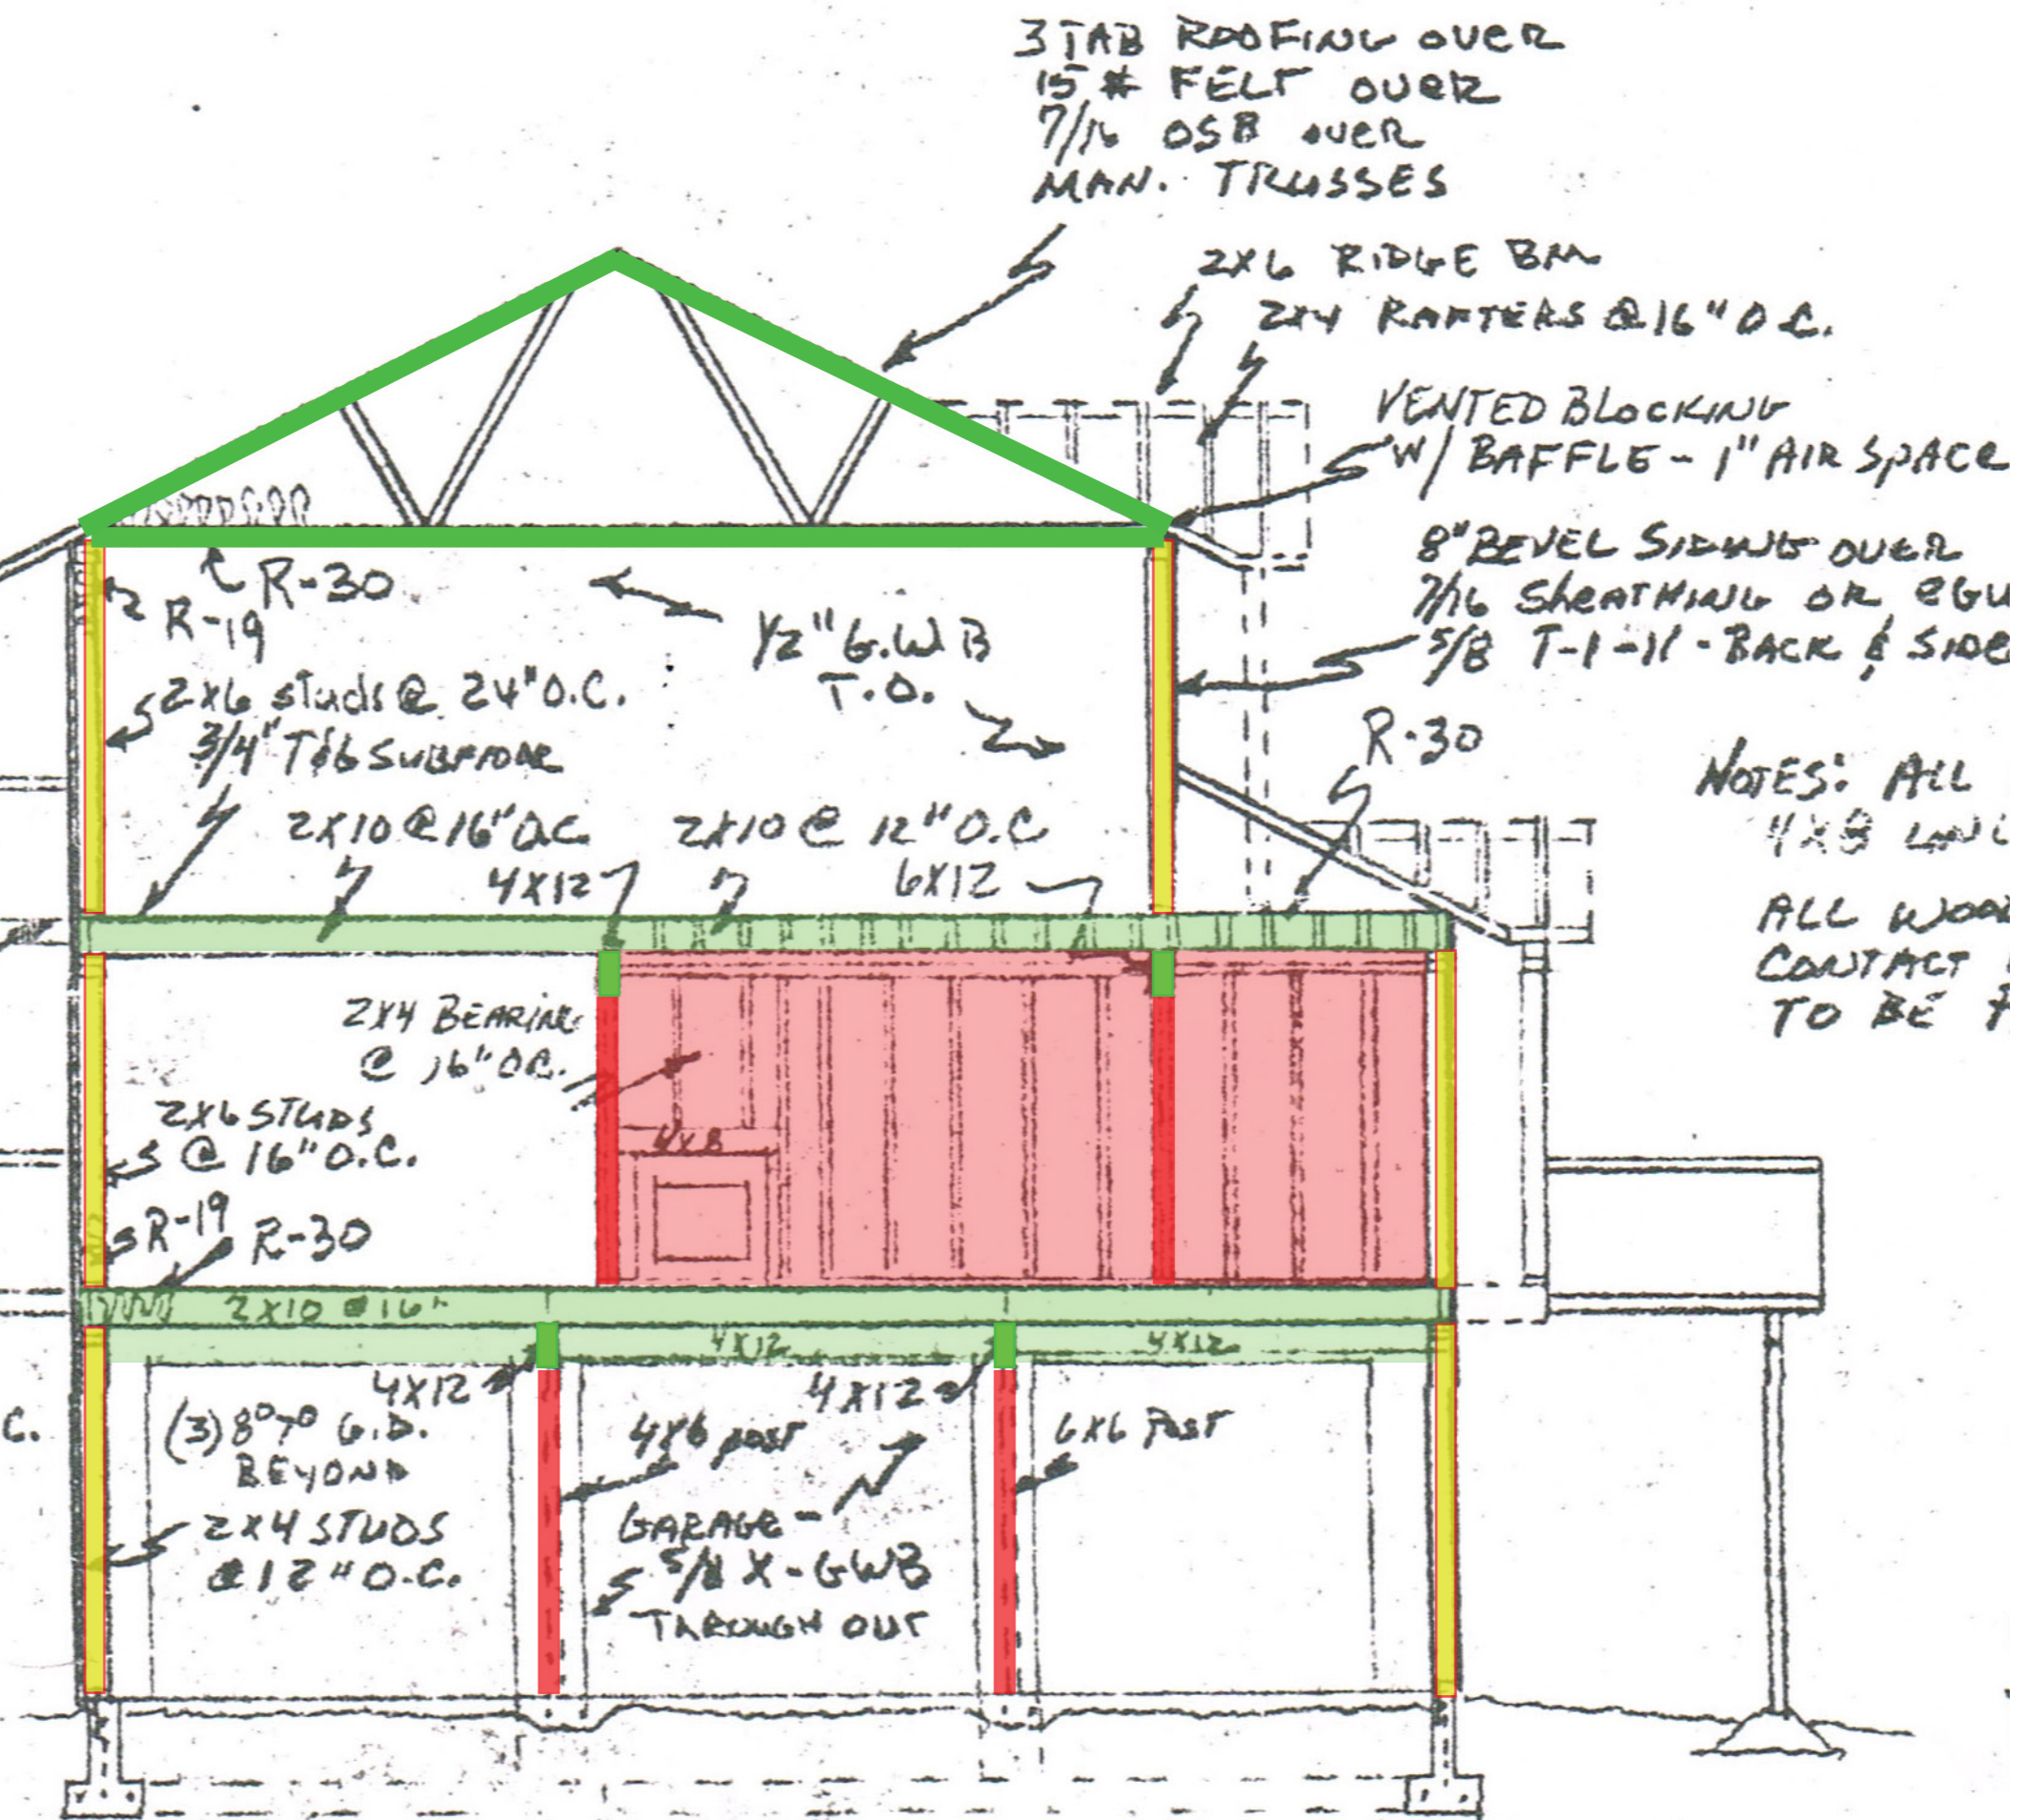 3 TAB ROOFING OVER
15 # FELT OVER
7/16 OSB OVER
MAN. TRUSSES
2X6 RIDGE BM
2X4 RAFTERS @ 16" O.C.
VENTED BLOCKING
W/ BAFFLE - 1" AIR SPACE
8" BEVEL SIDING OVER
7/16 SHEATHING OR EQU
5/8 T-1-11 - BACK & SIDE
R-30
R-19
1/2" G.W B
T.O.
2X6 studs @ 24" O.C.
3/4" T&G SUBFLOOR
R-30
NOTES: ALL
4X8
2X10 @ 16" O.C.
2X10 @ 12" O.C
4X12
6X12
ALL WOOD
CONTACT
TO BE
2X4 BEARING
@ 16" O.C.
2X6 STUDS
@ 16" O.C.
4X8
R-19
R-30
2X10 @ 16"
4X12
4X12
4X12
4X12
C.
(3) 8⁰7⁰ G.D.
BEYOND
4X6 post
6X6 POST
2X4 STUDS
@ 12" O.C.
GARAGE -
5/8 X - GWB
THROUGH OUT